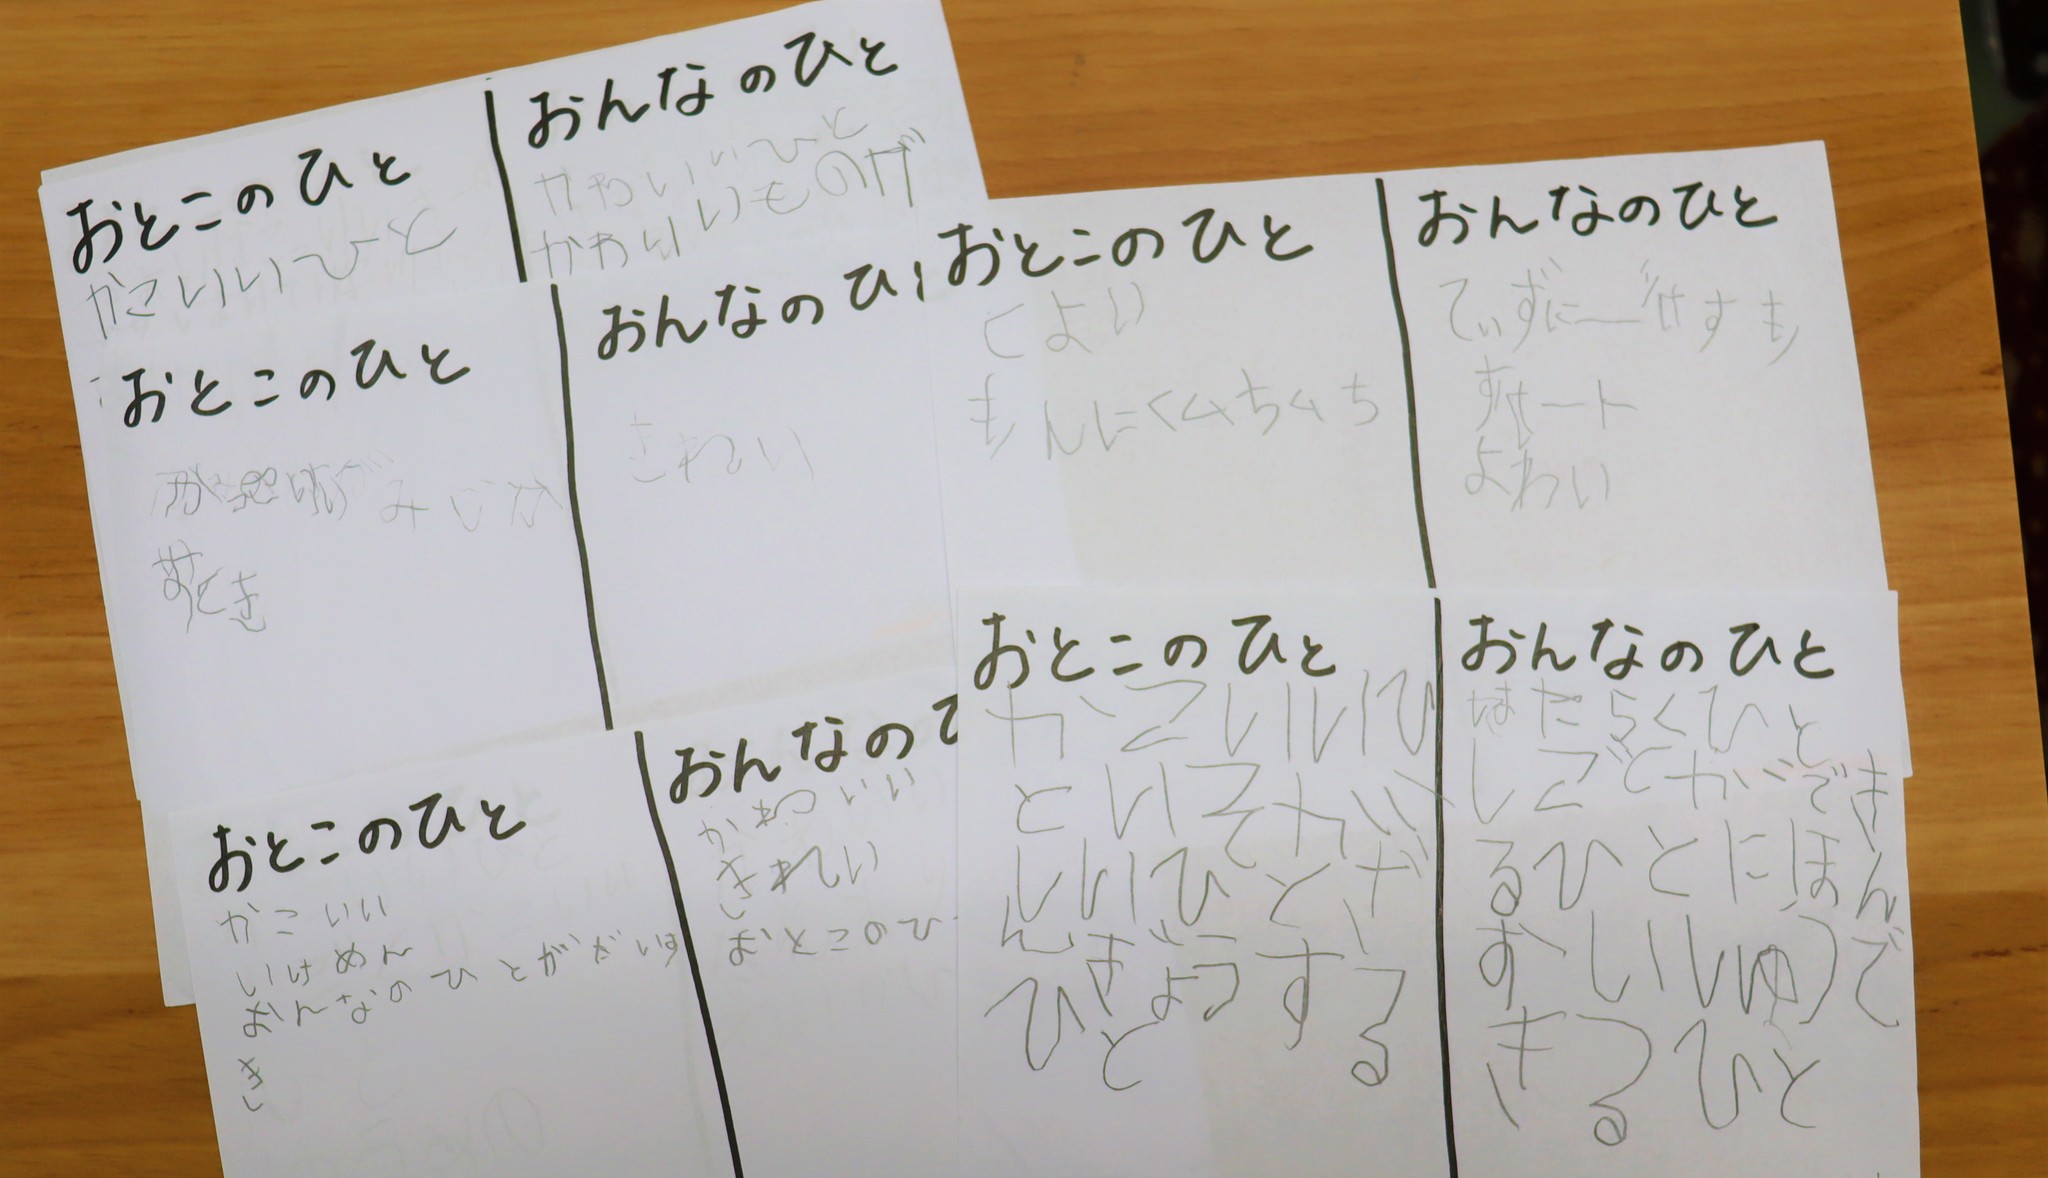 おとこのひと
かこいいひと
おんなのひと
かわいいひと
かわいいものが
おとこのひと
みじか
すてき
おんなのひ
きれい
おとこのひと
かこいい
いけめん
おんなのひとがだいす
き
おんなのひ
かわいい
きれい
おとこのひ
おとこのひと
つよい
もんにくムちムち
おんなのひと
てぃずにー
すも
よわい
おとこのひと
かこいいひ
といそがい
しいひとが
んぎょうする
ひと
おんなのひと
はたらくひと
しごとができ
るひとにほん
おいしゅうで
きるひと